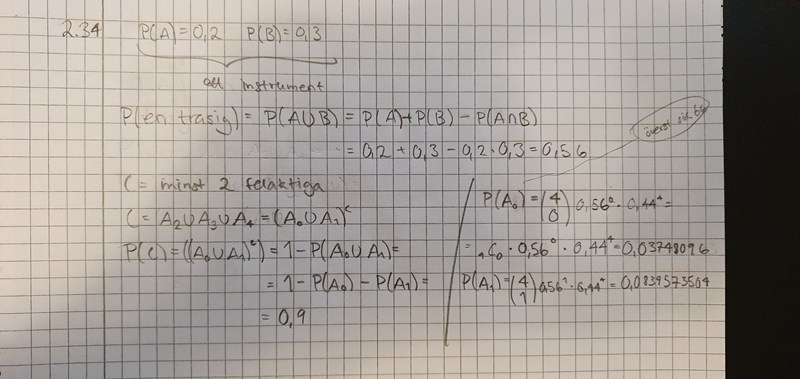 2.34 P(A)=0,2 P(B)=0,3
att instrument
P(en trasig) = P(A∪B) = P(A)+P(B) − P(A∩B)
= 0,2 + 0,3 − 0,2·0,3 = 0,56
överst sid 66
C = minst 2 felaktiga
C = A₂∪A₃∪A₄ = (A₀∪A₁)ᶜ
P(C) = ((A₀∪A₁)ᶜ) = 1−P(A₀∪A₁) =
= 1−P(A₀)−P(A₁) =
= 0,9
P(A₀) = (4 0) 0,56⁰ · 0,44⁴ =
= ₄C₀ · 0,56⁰ · 0,44⁴ = 0,03748096
P(A₁) = (4 1) 0,56¹ · 0,44⁴ = 0,0839573504